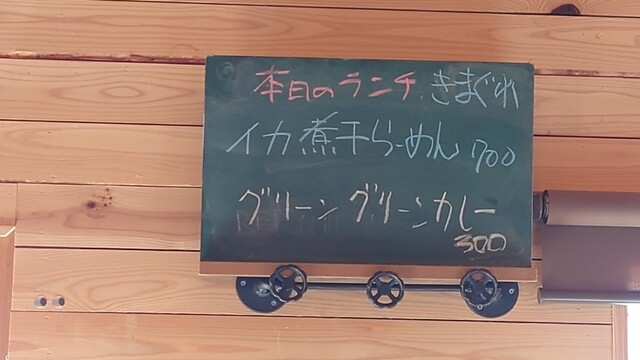 本日のランチ きまぐれ
イカ煮干らーめん 700
グリーングリーンカレー
300